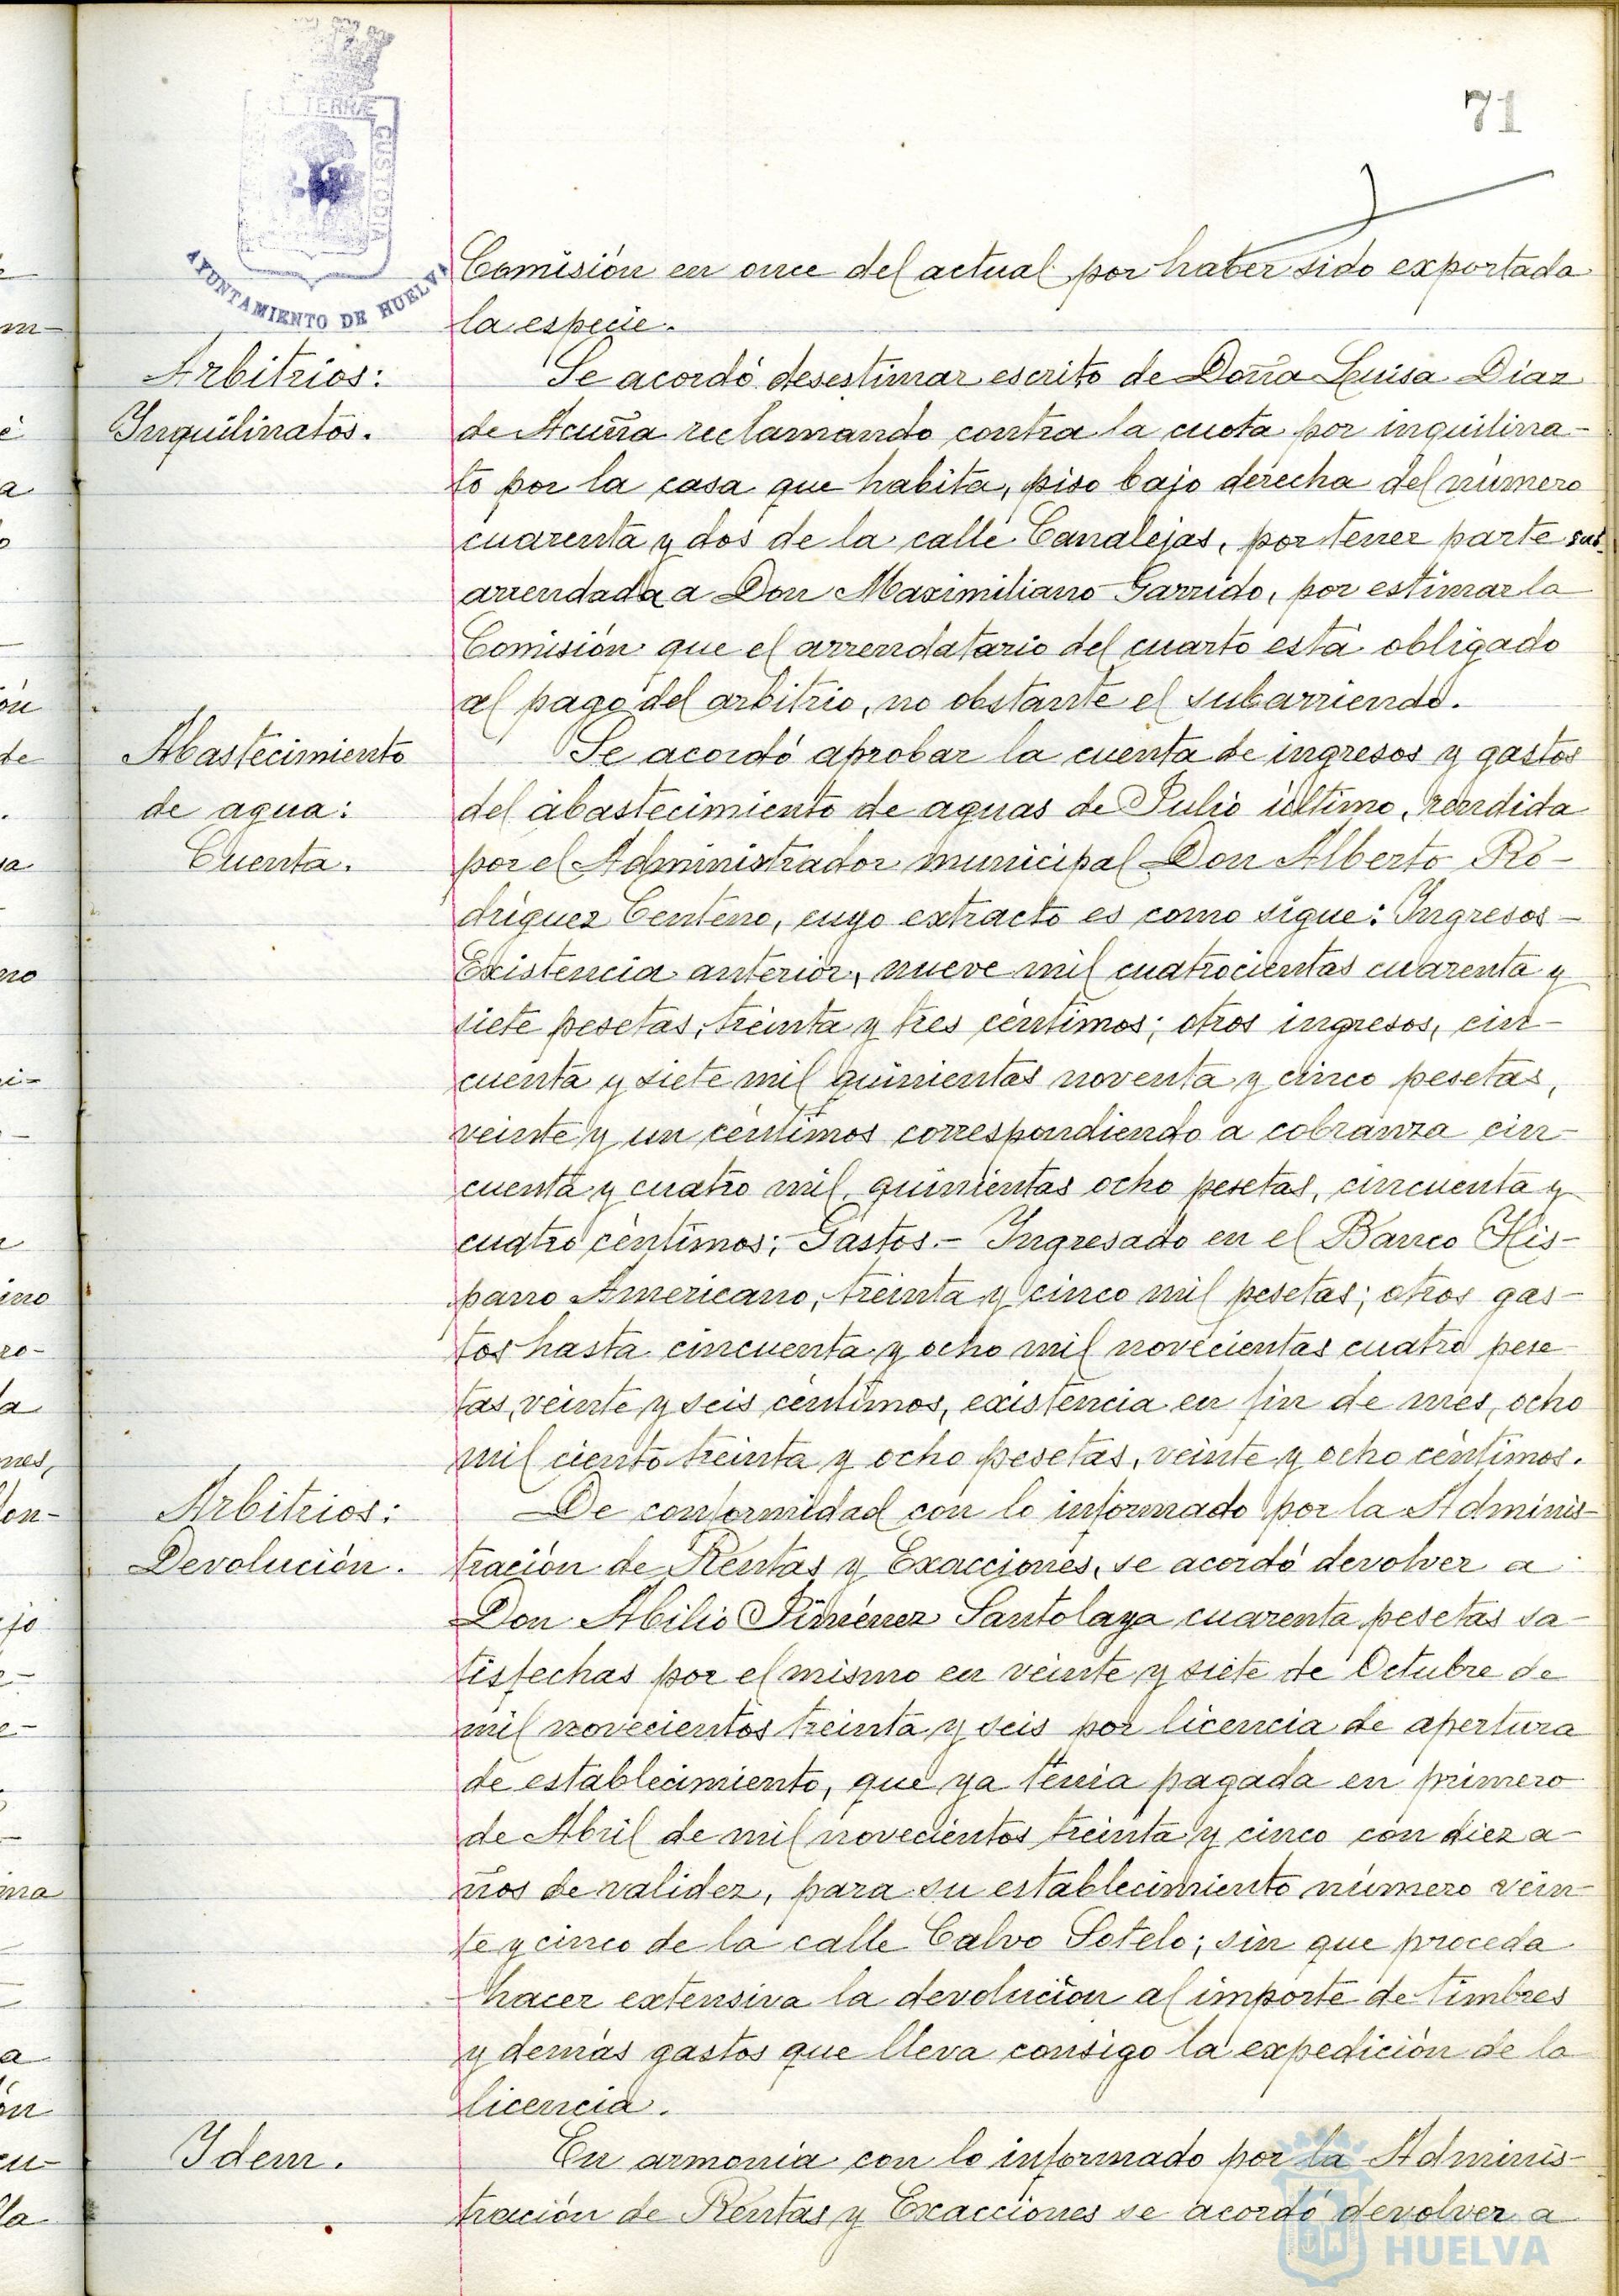 71
TERRÆ
CUSTODIA
AYUNTAMIENTO DE HUELVA
Comisión en once del actual por haber sido exportada
la especie.
Arbitrios:
Inquilinatos.
Se acordó desestimar escrito de Doña Luisa Díaz
de Acuña reclamando contra la cuota por inquilina-
to por la casa que habita, piso bajo derecha del número
cuarenta y dos de la calle Canalejas, por tener parte sub-
arrendada a Don Maximiliano Garrido, por estimar la
Comisión que el arrendatario del cuarto está obligado
al pago del arbitrio, no obstante el subarriendo.
Abastecimiento
de agua:
Cuenta.
Se acordó aprobar la cuenta de ingresos y gastos
del abastecimiento de aguas de Julio último, rendida
por el Administrador municipal Don Alberto Ro-
driguez Centeno, cuyo extracto es como sigue: Ingresos-
Existencia anterior, nueve mil cuatrocientas cuarenta y
siete pesetas, treinta y tres céntimos; otros ingresos, cin-
cuenta y siete mil quinientas noventa y cinco pesetas,
veinte y un céntimos correspondiendo a cobranza cin-
cuenta y cuatro mil, quinientas ocho pesetas, cincuenta y
cuatro céntimos; Gastos.- Ingresado en el Banco His-
pano Americano, treinta y cinco mil pesetas; otros gas-
tos hasta cincuenta y ocho mil novecientas cuatro pese
tas, veinte y seis céntimos, existencia en fin de mes, ocho
mil ciento treinta y ocho pesetas, veinte y ocho céntimos.
Arbitrios:
Devolución.
De conformidad con lo informado por la Adminis-
tración de Rentas y Exacciones, se acordó devolver a
Don Abilio Jiménez Santolaya cuarenta pesetas sa-
tisfechas por el mismo en veinte y siete de Octubre de
mil novecientos treinta y seis por licencia de apertura
de establecimiento, que ya tenia pagada en primero
de Abril de mil novecientos treinta y cinco con diez a-
ños de validez, para su establecimiento número vein-
te y cinco de la calle Calvo Sotelo; sin que proceda
hacer extensiva la devolución al importe de timbres
y demás gastos que lleva consigo la expedición de la
licencia.
Idem.
En armonia con lo informado por la Adminis-
tración de Rentas y Exacciones se acordó devolver a
HUELVA